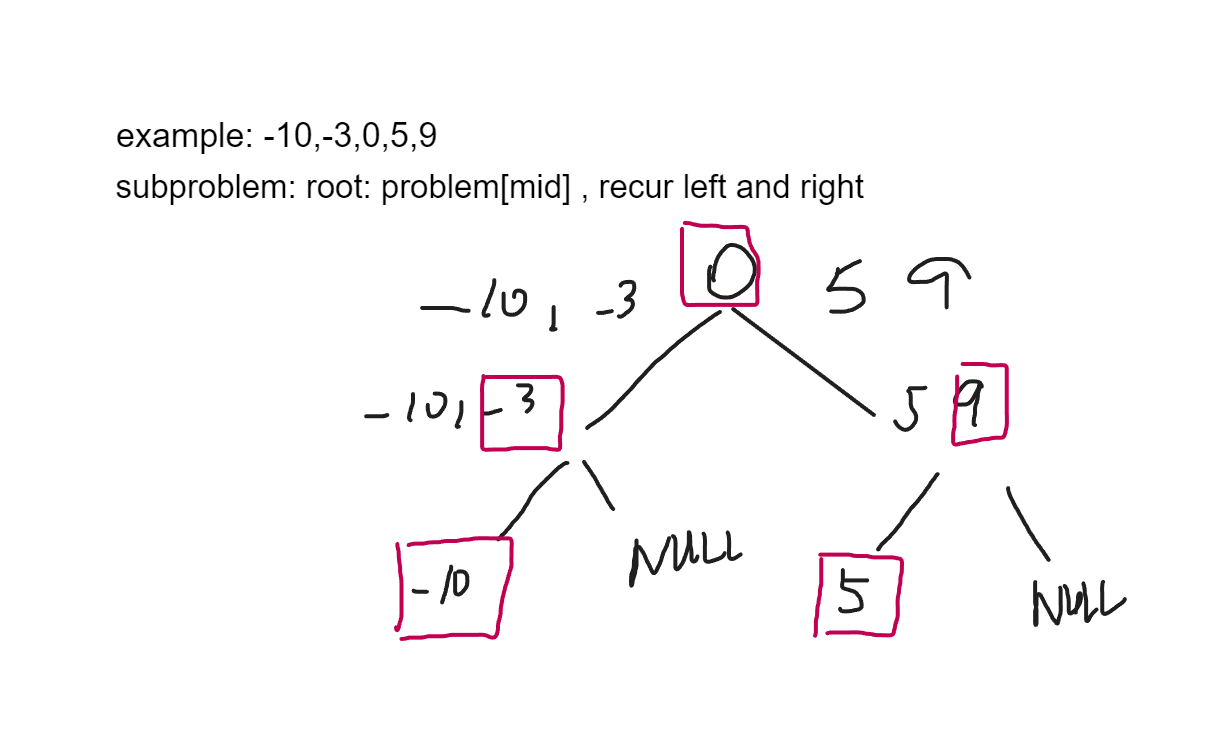 example: -10,-3,0,5,9
subproblem: root: problem[mid] , recur left and right
-10, -3 0 5 9
-10, -3 5 9
-10 NULL 5 NULL